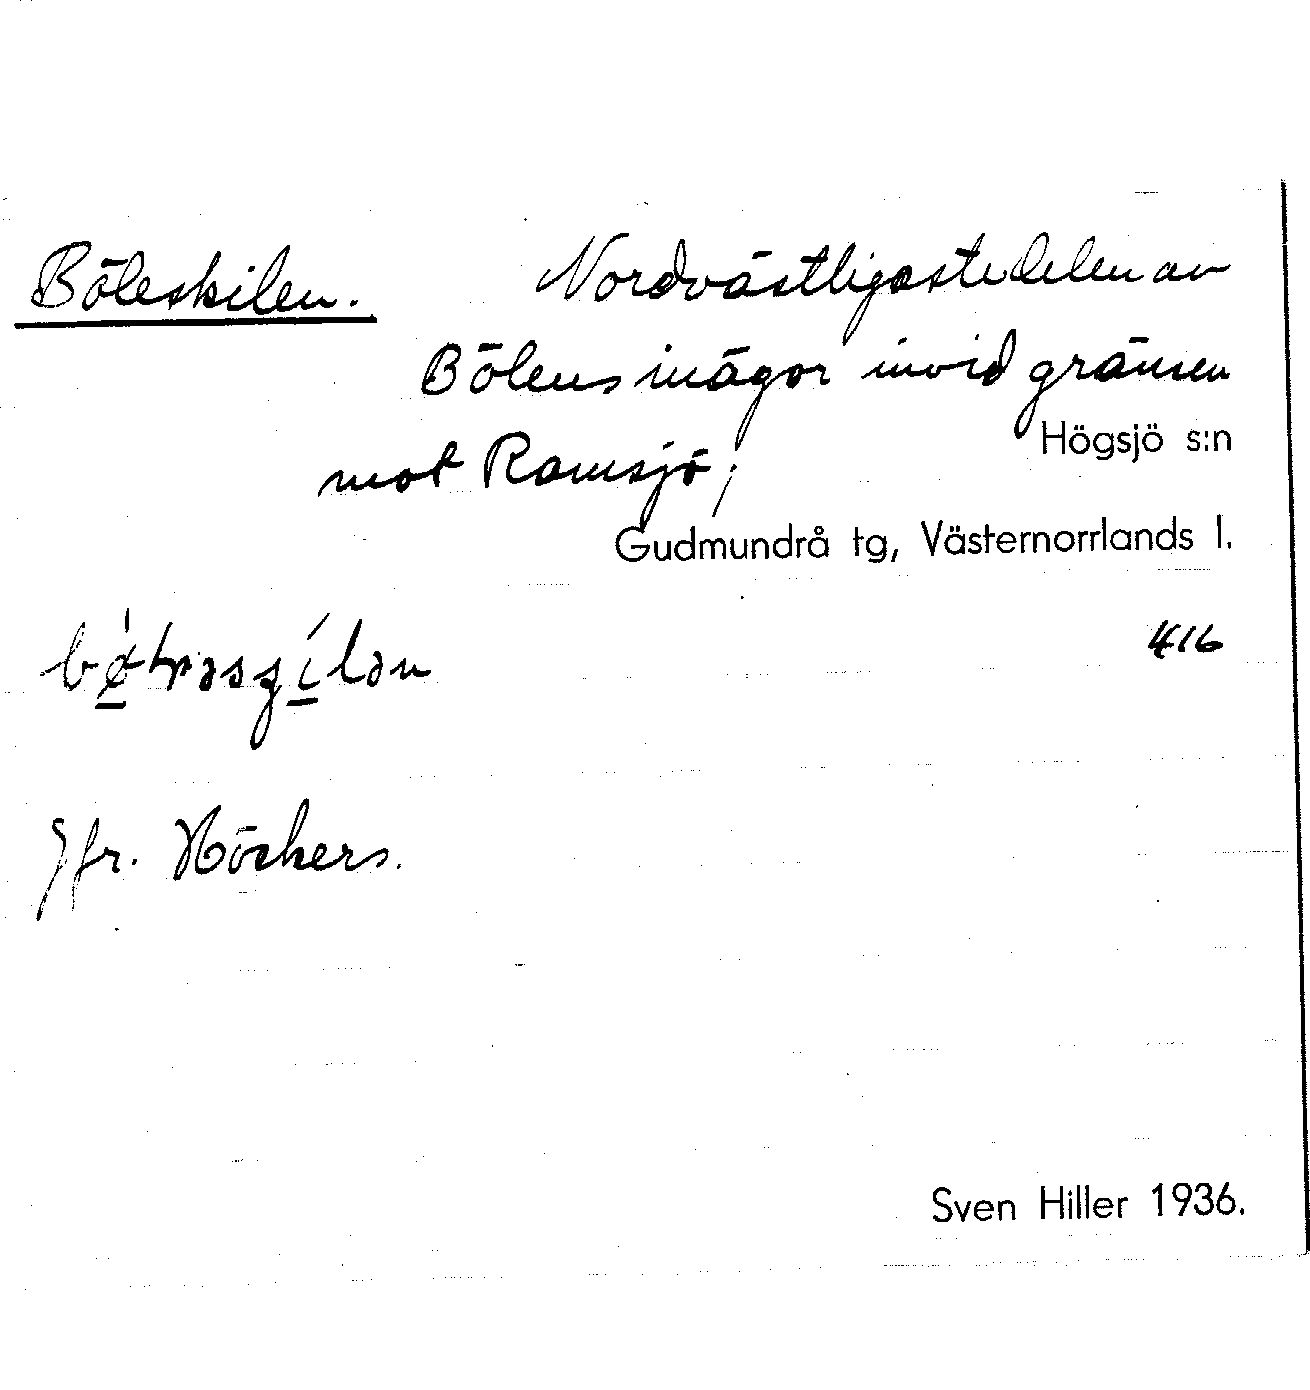 Böleskilen. Nordvästligaste delen av
Bölens inägor invid gränsen
mot Ramsjö;
Högsjö s:n
Gudmundrå tg, Västernorrlands l.
416
Jfr. Höckers.
Sven Hiller 1936.